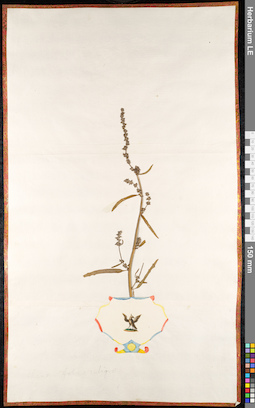 Herbarium LE
150 mm